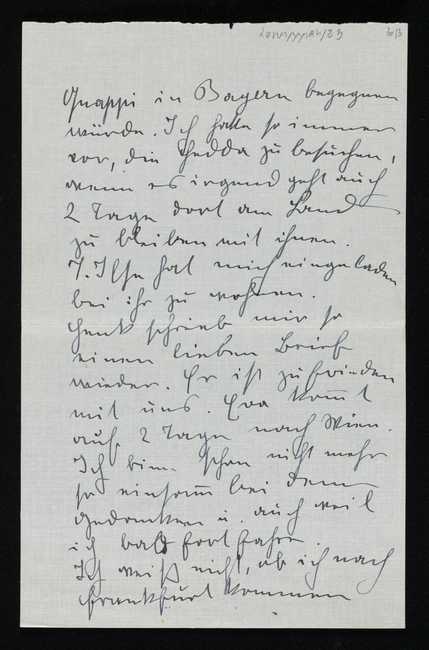 Quappi in Bayern begegnen
würde. Ich habe so immer
vor, die Hedda zu besuchen,
wenn es irgend geht auch
2 Tage dort am Land
zu bleiben mit ihnen.
J. Ilse hat mich eingeladen
bei ihr zu wohnen.
Henk schrieb mir so
einen lieben Brief
wieder. Er ist zufrieden
mit uns. Eva kom̅t
auf 2 Tage nach Wien.
Ich bin schon nicht mehr
so einsam̅ bei dem
Gedanken u. auch weil
ich bald fortfahre.
Ich weiß nicht, ob ich nach
Frankfurt kommen